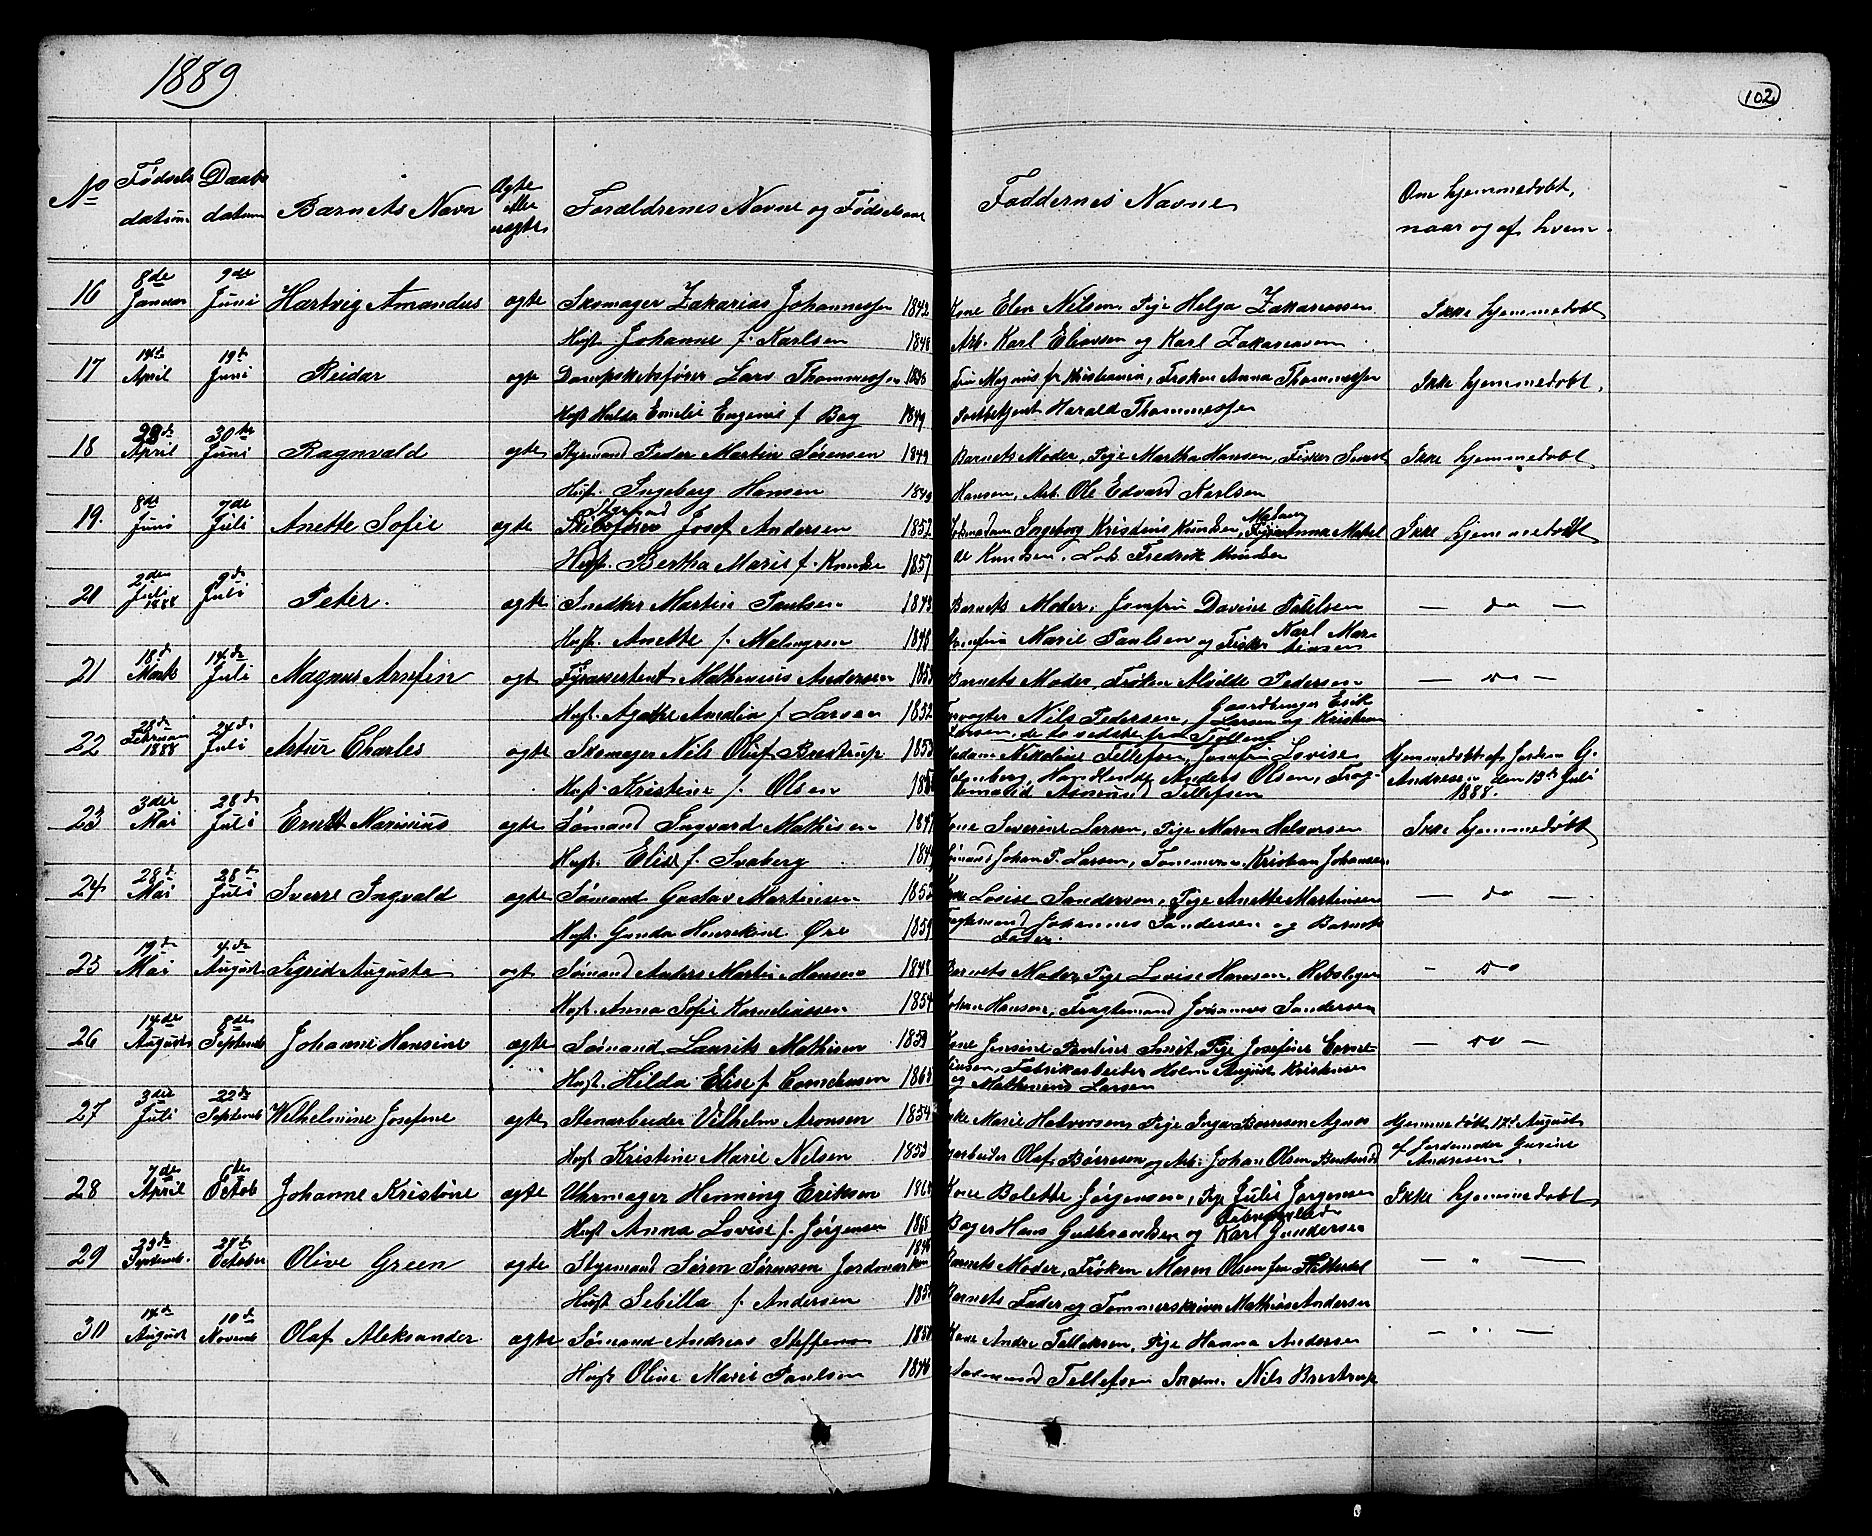 1889
102
No Fødsels datum Daabs datum Barnets Navn Ægte eller uægte Forældrenes Navne og Fødselsaar Faddernes Navne Om hjemmedøbt, naar og af hvem
16 8de Januar 9de Juni Hartvig Amandus ægte Skomager Zakarias Johannessen 1842 Kone Elen Nilsen, Pige Helga Zakariassen Ikke hjemmedøbt
Hust. Johanne f. Karlsen 1848 Arb. Karl Eliassen og Karl Zakariassen
17 14de April 19de Juni Reidar ægte Dampskibsfører Lars Thommessen Fru Magnus fra Kristiania, Frøken Anna Thommessen Ikke hjemmedøbt
Hust Hulda Emelie Eugenie f Bay 1849 Harald Thommessen
18 April 30te Juni Ragnvald ægte Styrmand Peder Martin Sørensen 1849 Barnets Moder, Pige Martha Hansen, Fisker Ikke hjemmedøbt
Hust. Ingeborg Hansen 1849 Hansen, Arb. Ole Edvard Karlsen
19. 8de Juni 7de Juli Anette Sofie ægte Styrmand Josef Andersen 1852 Ingeborg Kristine Knudsen, Madam Anna Ikke hjemmedøbt
Hust. Bertha Marie f. Knudsen 1857 Knudsen, Lods Fredrik Knudsen
20 2den Juli 1888 9de Juli Peter. ægte Snedker Martin Paulsen 1843 Barnets Moder, Jomfru Davine Paulsen — do —
Hust. Anette f. Malmgren 1848 Jomfru Marie Paulsen og Fisker Karl Martinsen
21 18de Marts 14de Juli Magnus Arnfin ægt Fyrassistent Mathenius Andersen 1853 Barnets Moder, Frøken Alvilde Pedersen — do —
Hust. Agathe Amalia f. Larsen 1852 Nils Pedersen, Gaardbruger Erik Larsen og Kristian
22 28de Februar 1888 24de Juli Artur Charles ægte Skomager Nils Oluf Brestrup 1853 Madam Nikoline Tellefsen, Jomfru Lovise Hjemmedøbt af Jordm G.
Hust. Kristine f. Olsen Anders Olsen, Frag- Andresen den 13de Juli 1888.
temand Asmund Tellefsen
23 3die Mai 28de Juli Ernst Marinius ægte Sømand Ingvard Mathisen Kone Severine Larsen, Pige Maren Halvorsen Ikke hjemmedøbt
Hust. Elise f. Svaberg Sømand Johan P. Larsen, Tømmerm. Kristian Johansen
24 28de Mai 28de Juli Sverre Ingvald ægte Sømand Gustav Martinsen 1852 Kone Lovise Sandersen, Pige Anette Martinsen — do —
Hust. Gunda Henrikine Øre 1859 Fragtemand Johannes Sandersen og Barnets Fader.
25 19de Mai 4de August Sigrid Augusta ægt Sømand Anders Martin Hansen 1848 Barnets Moder, Pige Lovise Hansen, Rebslager — do
Hust. Anna Sofie Korneliussen 1854 Johan Hansen, Fragtemand Johannes Sandersen
26 14de August 8de Septemb Johanne Hansine ægte Sømand Laurits Mathisen 1859 Kone Jensine Pauline Smit, Pige Josefine Corne- — do —
Hust. Hilda Elise f. Corneliussen 1865 Fabrikarbeider August Kristensen
og Mathenius Larsen
27 3die Juli 22de Septemb Wilhelmine Josefine ægte Stenarbeider Vilhelm Aronsen 1854 Enke Marie Halvorsen, Pige Inga Børresen Agnes Hjemmedøbt 17de August
Hust Kristine Marie Nilsen 1853 Olaf Børresen og Arb. Johan Olsen af Jordemoder Gurine Andresen.
28 7de April 6te Octob Johanne Kristine ægte Uhrmager Henning Eriksen Kone Bolette Jørgensen, Pige Julie Jørgensen Ikke hjemmedøbt
Hust Anna Lovise f. Jørgensen 1868 Bager Hans Gudbrandsen og Karl Gundersen
29 23de Septemb. 27de October Olive Green ægte Styrmand Søren Sørensen 1846 Barnets Moder, Frøken Maren Olsen fra — " —
Hust Sebilla f. Andersen Barnets Fader og Tømmerskriver Mathias Andersen
30 14de August 10de Novemb Olaf Aleksander ægte Sømand Andreas Steffensen 1858 Kone Andrea Tellefsen, Pige Hanna Andersen — " —
Hust Oline Marie Paulsen 1846 Tellefsen Nils Brestrup